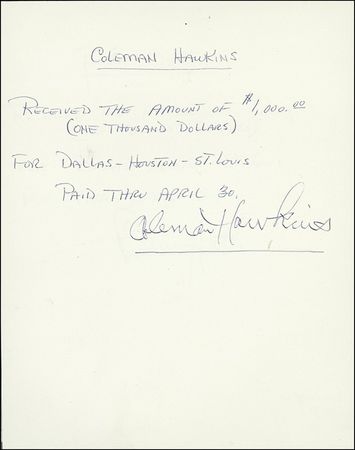 COLEMAN HAWKINS
RECEIVED THE AMOUNT OF $1,000.00
(ONE THOUSAND DOLLARS)
FOR DALLAS - HOUSTON - ST. LOUIS
PAID THRU APRIL 30.
Coleman Hawkins